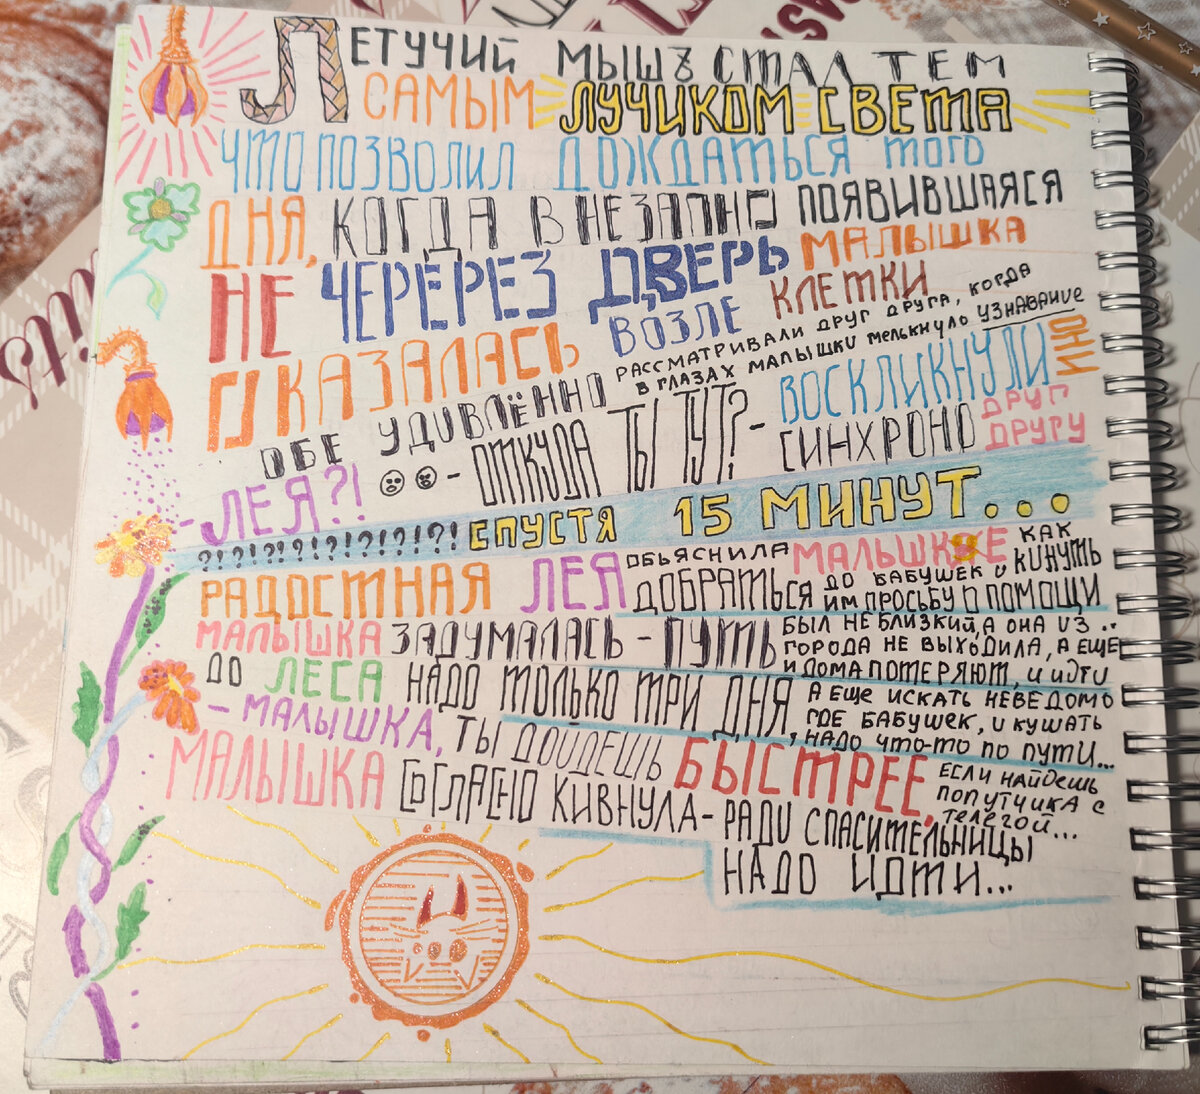 ЛЕТУЧИЙ МЫШЪ СТАЛ ТЕМ
САМЫМ ЛУЧИКОМ СВЕТА
ЧТО ПОЗВОЛИЛ ДОЖДАТЬСЯ ТОГО
ДНЯ, КОГДА ВНЕЗАПНО ПОЯВИВШАЯСЯ
НЕ ЧЕРЕРЕЗ ДВЕРЬ МАЛЫШКА
ОКАЗАЛАСЬ ВОЗЛЕ КЛЕТКИ
ОБЕ УДИВЛЁННО РАССМАТРИВАЛИ ДРУГ ДРУГА, КОГДА
В ГЛАЗАХ МАЛЫШКИ МЕЛЬКНУЛО УЗНАВАНИЕ
- ЛЕЯ?! - ОТКУДА ТЫ ТУТ? - ВОСКЛИКНУЛИ ИНО
СИНХРОНО ДРУГ
ДРУГУ
?!?!?!?!?!?!?!?! СПУСТЯ 15 МИНУТ...
РАДОСТНАЯ ЛЕЯ ОБЬЯСНИЛА МАЛЫШКЕ КАК
ДОБРАТЬСЯ ДО БАБУШЕК И КИНУТЬ
ИМ ПРОСЬБУ О ПОМОЩИ
МАЛЫШКА ЗАДУМАЛАСЬ - ПУТЬ БЫЛ НЕ БЛИЗКИЙ, А ОНА ИЗ ..
ГОРОДА НЕ ВЫХОДИЛА, А ЕЩЕ
И ДОМА ПОТЕРЯЮТ, И ИДТИ
ДО ЛЕСА НАДО ТОЛЬКО ТРИ ДНЯ, А ЕЩЕ ИСКАТЬ НЕВЕДОМО
ГДЕ БАБУШЕК, И КУШАТЬ
НАДО ЧТО-ТО ПО ПУТИ...
- МАЛЫШКА, ТЫ ДОЙДЕШЬ БЫСТРЕЕ, ЕСЛИ НАЙДЕШЬ
ПОПУТЧИКА С
ТЕЛЕГОЙ...
МАЛЫШКА СОГЛАСНО КИВНУЛА - РАДИ СПАСИТЕЛЬНИЦЫ
НАДО ИДТИ...